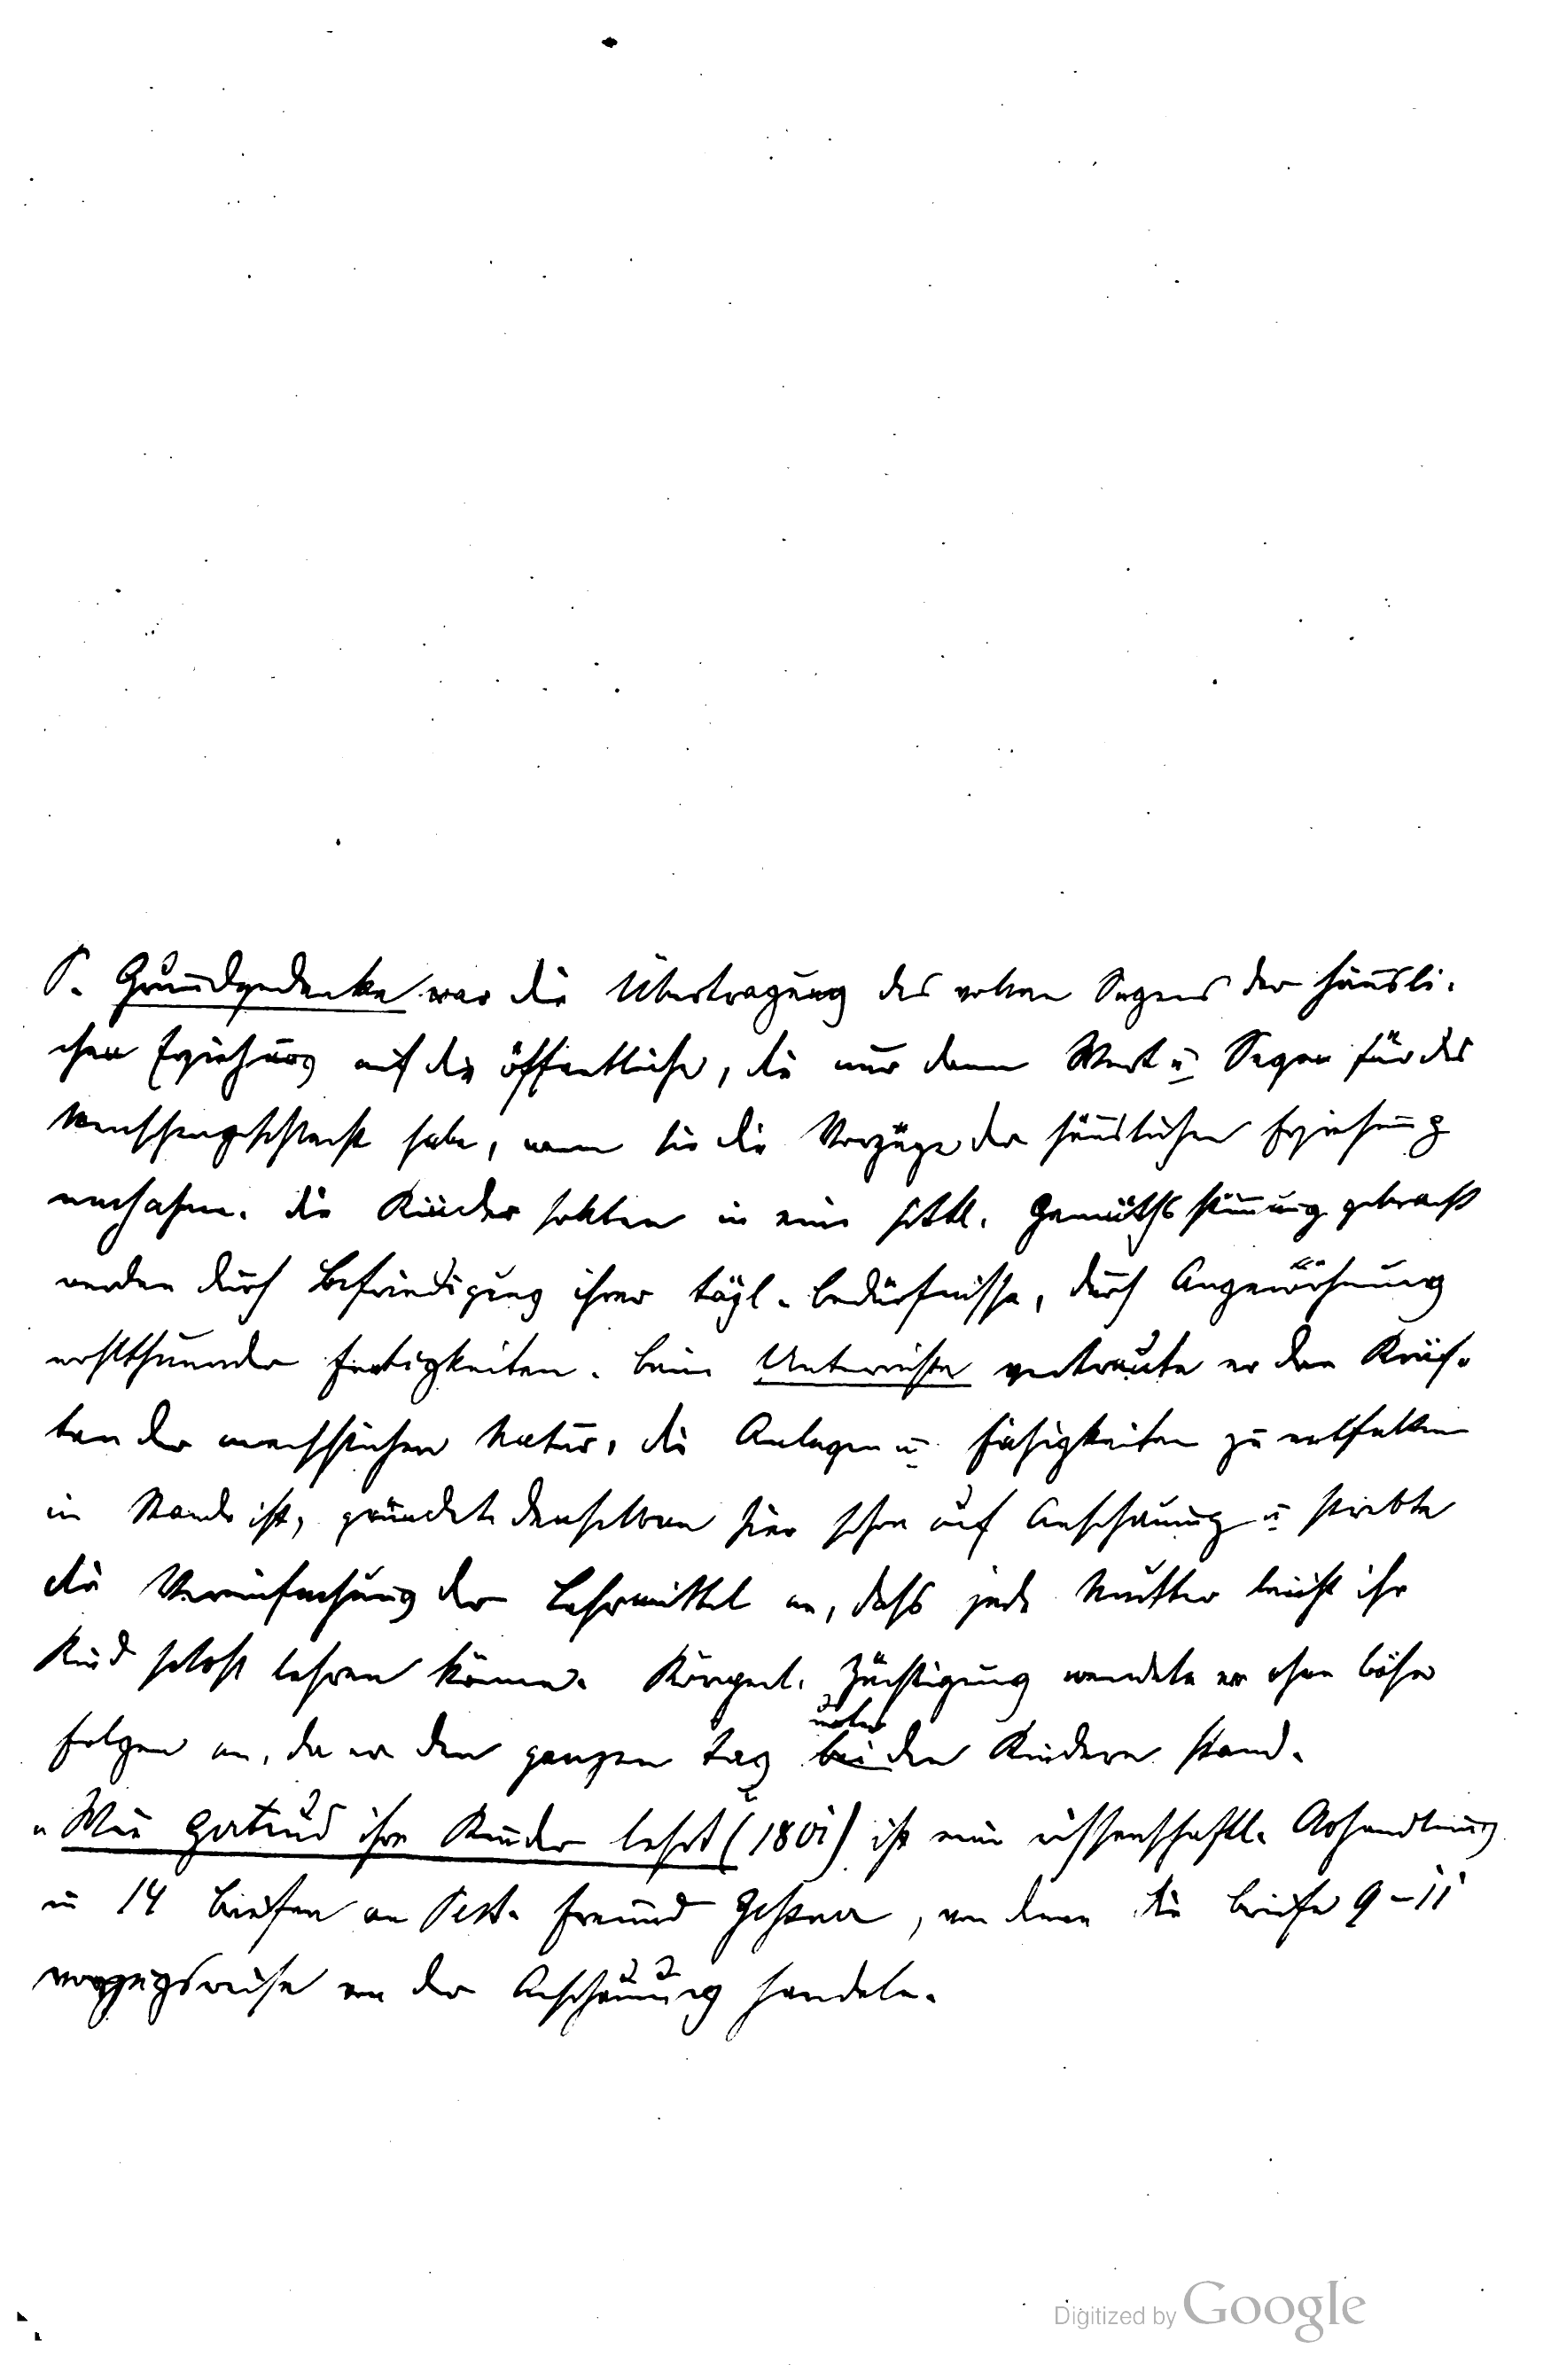 P. Grundgedanke war die Übertragung des vollen Segens der häusli-
chen Erziehung auf die öffentliche, die nur dann Wert u Segen für das
Menschengeschlecht habe, wenn sie die Vorzüge der häuslichen Erziehung
nachahme. die Kinder sollten in eine sittl. Gemüthsstimmung gebracht
werden durch Befriedigung ihrer tägl. Bedürfnisse, durch Angewöhnung
wohlthuender Fertigkeiten. beim Unterrichte vertraute er den Kräf-
ten der menschlichen Natur, die Anlagen u Fähigkeiten zu entfalten
im Stande ist, gründete denselben hier schon auf Anschauung u strebte
die Vereinfachung der Lehrmittel an, dass jede Mutter leicht ihr
Kind selbst lehren könne. Körperl. Züchtigung wendete er ohne böse
unter
Folgen an, da er den ganzen Tag bei den Kindern stand.
"Wie Gertrud ihre Kinder lehrt (1801) ist eine wissenschaftl. Abhandlung
in 14 Briefen an Pest. Freund Geßner, von denen die Briefe 9-11
vorzugsweise von der Anschauung handeln.
Digitized by Google